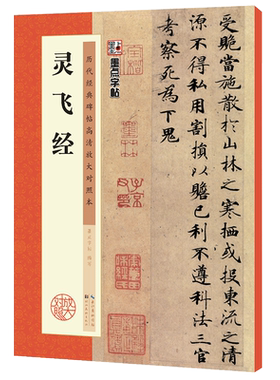 受貺當施散於山林之寒栖或投東流之清
源不得私用割損以贍己利不遵科法三官
考察死為下鬼
墨点字帖
历代经典碑帖高清放大对照本
灵飞经
放大对照